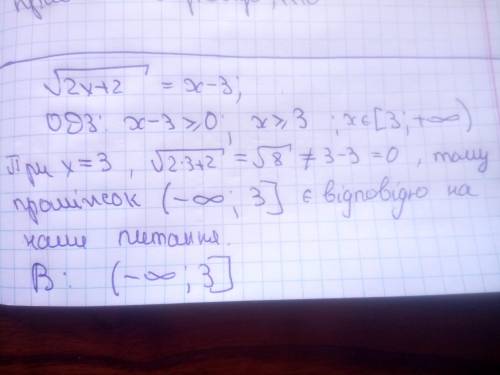 √2x+2 = x-3;
ОДЗ: x-3≥0; x≥3 ; xϵ[3;+∞)
При x=3, √2·3+2 = √8 ≠ 3-3 =0, тому
проміжок (-∞; 3] є відповідю на
наше питання.
В: (-∞; 3]